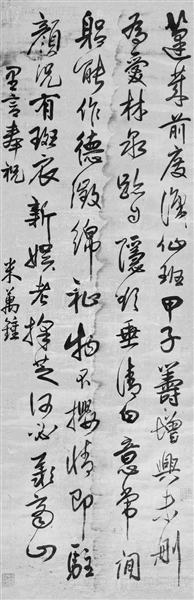 蓬莱前度仙班甲子籌增興未刪
為愛林泉自隱垂清白意常閒
躬能作德徵綿祉物不攖情即駐
顏況有斑衣新娛老採芝何必羨商山
里言奉祝
米萬鍾